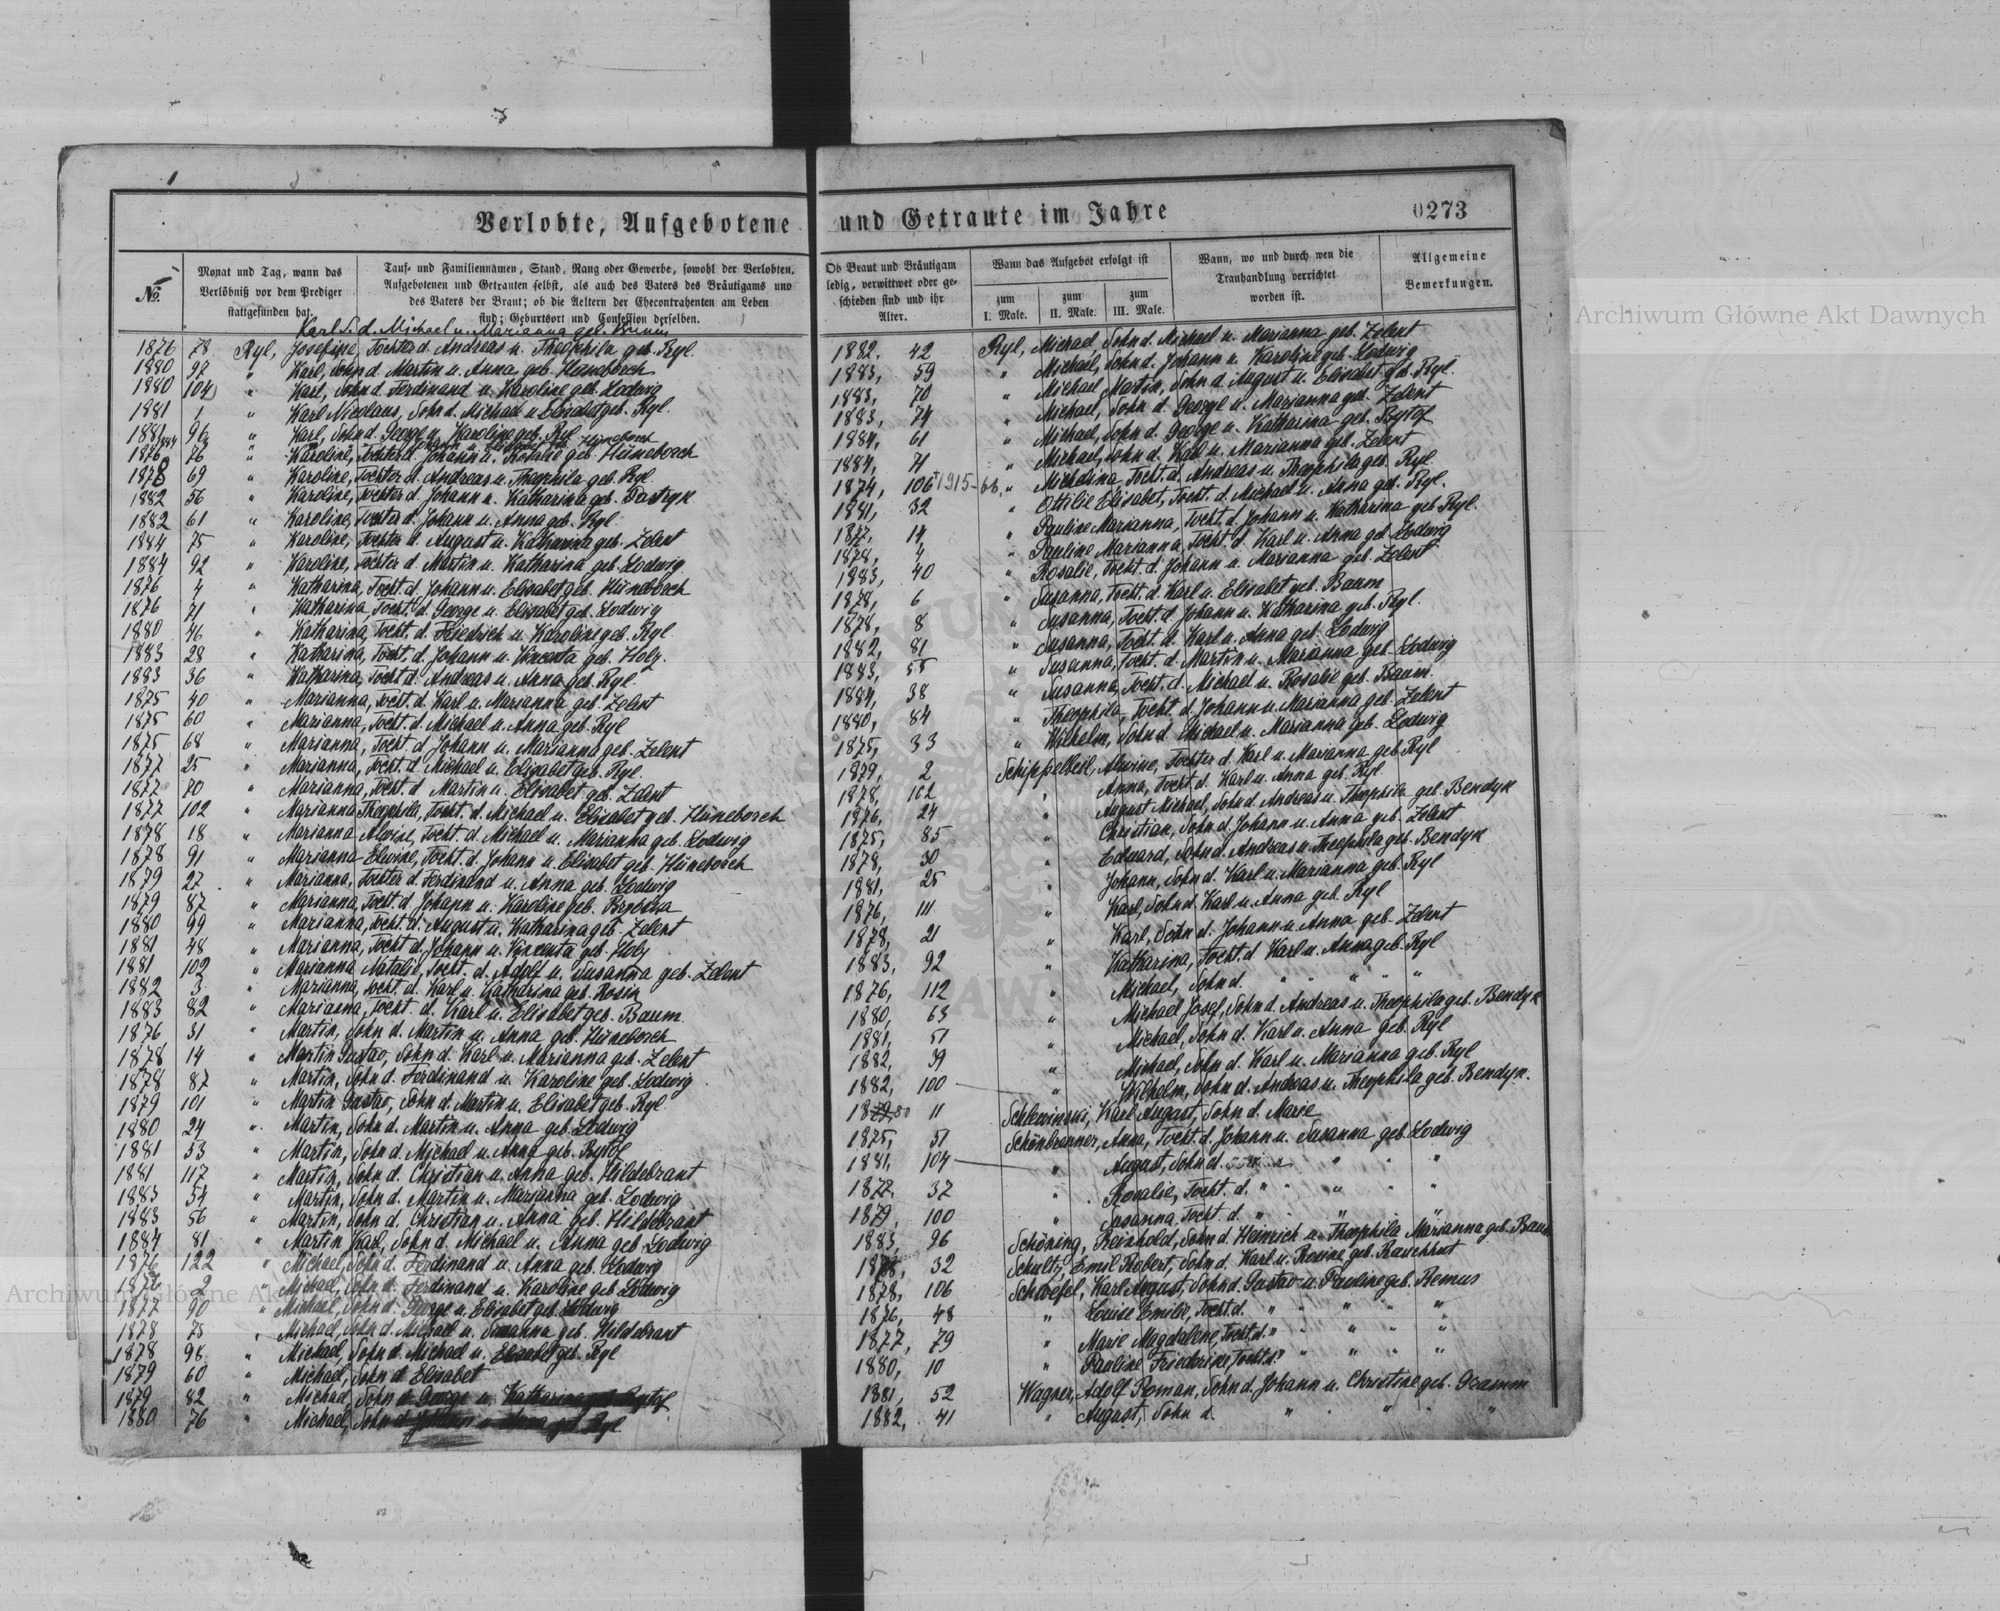 Verlobte, Aufgebotene
No.
Monat und Tag, wann das
Verlöbniß vor dem Prediger
stattgefunden hat.
Tauf- und Familiennamen, Stand, Rang oder Gewerbe, sowohl der Verlobten,
Aufgebotenen und Getrauten selbst, als auch des Vaters des Bräutigams und
des Vaters der Braut; ob die Aeltern der Ehecontrahenten am Leben
sind; Geburtsort und Confession derselben.
Karl S. d. Michael u. Marianna geb.
1876 78 Ryl, Josefine, Tochter d. Andreas u. Theophila geb. Ryl.
1880 92 " Karl, Sohn d. Martin u. Anna geb. Hüneborch
1880 104 " Karl, Sohn d. Ferdinand u. Karoline geb. Lodwig
1881 1 " Karl Nicolaus, Sohn d. Michael u. Elisabet geb. Ryl.
1881 96 " Karl, Sohn d. George u. Karoline geb. Ryl
1876 76 " Karoline, Tochter d. Johann u. Rosalie geb. Hüneborch
1878 69 " Karoline, Tochter d. Andreas u. Theophila geb. Ryl
1882 56 " Karoline, Tochter d. Johann u. Katharina geb. Dastryk
1882 61 " Karoline, Tochter d. Johann u. Anna geb. Ryl.
1884 75 " Karoline, Tochter d. August u. Katharina geb. Zelent
1884 92 " Karoline, Tochter d. Martin u. Katharina geb. Lodwig
1876 4 " Katharina, Tocht. d. Johann u. Elisabet geb. Hüneborch
1876 71 " Katharina, Tocht. d. George u. Elisabet geb. Lodwig
1880 46 " Katharina, Tocht. d. Friedrich u. Karoline geb. Ryl.
1883 28 " Katharina, Tocht. d. Johann u. Vincenta geb. Holz.
1883 36 " Katharina, Tocht. d. Andreas u. Anna geb. Ryl
1875 40 " Marianna, Tocht. d. Karl u. Marianna geb. Zelent
1875 60 " Marianna, Tocht. d. Michael u. Anna geb. Ryl
1875 68 " Marianna, Tocht. d. Johann u. Marianna geb. Zelent
1877 25 " Marianna, Tocht. d. Michael u. Elisabet geb. Ryl.
1877 70 " Marianna, Tocht. d. Martin u. Elisabet geb. Zelent
1877 102 " Marianna Theophila, Tocht. d. Michael u. Elisabet geb. Hüneborch
1878 18 " Marianna Alwine, Tocht. d. Michael u. Marianna geb. Lodwig
1878 91 " Marianna Elwine, Tocht. d. Johann u. Elisabet geb. Hüneborch
1879 27 " Marianna, Tochter d. Ferdinand u. Anna geb. Lodwig
1879 87 " Marianna, Tocht. d. Johann u. Karoline geb.
1880 99 " Marianna, Tocht. d. August u. Katharina geb. Zelent
1881 48 " Marianna, Tocht. d. Johann u. Vincenta geb. Holz
1881 102 " Marianna Natalie, Tocht. d. Adolf u. Susanna geb. Zelent
1882 3 " Marianna, Tocht. d. Karl u. Katharina geb. Rosin
1883 82 " Marianna, Tocht. d. Karl u. Elisabet geb. Baum
1876 31 " Martin, Sohn d. Martin u. Anna geb. Hüneborch
1878 14 " Martin Gustav, Sohn d. Karl u. Marianna geb. Zelent
1878 87 " Martin, Sohn d. Ferdinand u. Karoline geb. Lodwig
1879 101 " Martin Gustav, Sohn d. Martin u. Elisabet geb. Ryl.
1880 24 " Martin, Sohn d. Martin u. Anna geb. Lodwig
1881 53 " Martin, Sohn d. Michael u. Anna geb. Bytof
1881 117 " Martin, Sohn d. Christian u. Anna geb. Hildebrant
1883 54 " Martin, Sohn d. Martin u. Marianna geb. Lodwig
1883 56 " Martin, Sohn d. Christian u. Anna geb. Hildebrant
1884 81 " Martin Karl, Sohn d. Michael u. Anna geb. Lodwig
1876 122 " Michael, Sohn d. Ferdinand u. Anna geb. Lodwig
9 " Michael, Sohn d. Ferdinand u. Karoline geb. Lodwig
1877 90 " Michael, Sohn d. George u. Elisabet geb. Lodwig
1878 75 " Michael, Sohn d. Michael u. Susanna geb. Hildebrant
1878 98 " Michael, Sohn d. Michael u. Elisabet geb. Ryl
1879 60 " Michael, Sohn d. Elisabet
1879 82 " Michael, Sohn d. George u. Katharina geb. Bytof
1880 76 " Michael, Sohn d. Johann u. Anna geb. Ryl
und Getraute im Jahre
0273
Ob Braut und Bräutigam
ledig, verwittwet oder ge-
schieden sind und ihr
Alter.
Wann das Aufgebot erfolgt ist
zum I. Male.
zum II. Male.
zum III. Male.
Wann, wo und durch wen die
Trauhandlung verrichtet
worden ist.
Allgemeine
Bemerkungen.
1882, 42 Ryl, Michael, Sohn d. Michael u. Marianna geb. Zelent
1883, 59 " Michael, Sohn d. Johann u. Karoline geb. Lodwig
1883, 70 " Michael Martin, Sohn d. August u. Elisabet geb. Ryl.
1883, 74 " Michael, Sohn d. George u. Marianna geb. Zelent
1884, 61 " Michael, Sohn d. George u. Katharina geb. Bytof
1884, 71 " Michael, Sohn d. Karl u. Marianna geb. Zelent
1874, 106 †1915-66. " Michalina, Tocht. d. Andreas u. Theophila geb. Ryl
1881, 32 " Ottilie Elisabet, Tocht. d. Michael u. Anna geb. Ryl.
1877, 14 " Pauline Marianna, Tocht. d. Johann u. Katharina geb. Ryl.
1878, 4 " Pauline Marianna, Tocht. d. Karl u. Anna geb. Lodwig
1883, 40 " Rosalie, Tocht. d. Johann u. Marianna geb. Zelent
1878, 6 " Susanna, Tocht. d. Karl u. Elisabet geb. Baum
1878, 8 " Susanna, Tocht. d. Johann u. Katharina geb. Ryl.
1882, 81 " Susanna, Tocht. d. Karl u. Anna geb. Lodwig
1883, 55 " Susanna, Tocht. d. Martin u. Marianna geb. Lodwig
1884, 38 " Susanna, Tocht. d. Michael u. Rosalie geb. Baum.
1880, 84 " Theophila, Tocht. d. Johann u. Marianna geb. Zelent
1875, 33 " Wilhelm, Sohn d. Michael u. Marianna geb. Lodwig
1879, 2 Schippelbeil, Alwine, Tochter d. Karl u. Marianna geb. Ryl
1878, 102 " Anna, Tocht. d. Karl u. Anna geb. Ryl
1876, 24 " August Michael, Sohn d. Andreas u. Theophila geb. Bendyk
1875, 85 " Christian, Sohn d. Johann u. Anna geb. Zelent
1878, 30 " Eduard, Sohn d. Andreas u. Theophila geb. Bendyk
1881, 25 " Johann, Sohn d. Karl u. Marianna geb. Ryl
1876, 111 " Karl, Sohn d. Karl u. Anna geb. Ryl
1878, 21 " Karl, Sohn d. Johann u. Anna geb. Zelent
1883, 92 " Katharina, Tocht. d. Karl u. Anna geb. Ryl
1876, 112 " Michael, Sohn d. " " " " "
1880, 63 " Michael Josef, Sohn d. Andreas u. Theophila geb. Bendyk
1881, 51 " Michael, Sohn d. Karl u. Anna geb. Ryl
1882, 39 " Michael, Sohn d. Karl u. Marianna geb. Ryl
1882, 100 " Wilhelm, Sohn d. Andreas u. Theophila geb. Bendyk.
1879 80 11 Schlewinski, Karl August, Sohn d. Marie
1875, 51 Schönbrenner, Anna, Tocht. d. Johann u. Susanna geb. Lodwig
1881, 104 " August, Sohn d. " " "
1877, 37 " Rosalie, Tocht. d. " " " "
1879, 100 " Susanna, Tocht. d. " " " "
1883, 96 Schöning, Reinhold, Sohn d. Heinrich u. Theophila Marianna geb. Baum
32 Schultz, Emil Robert, Sohn d. Karl u. Rosine geb. Rauchhut
1878, 106 Schwefel, Karl August, Sohn d. Gustav u. Pauline geb. Remus
1876, 48 " Louise Emilie, Tocht. d. " " " "
1877, 79 " Marie Magdalene, Tocht. d. " " " "
1880, 10 " Pauline Friederike, Tocht. d. " " " "
1881, 52 Wagner, Adolf Roman, Sohn d. Johann u. Christine geb. Gramm
1882, 41 " August, Sohn d. " " " "
Archiwum Główne Akt Dawnych